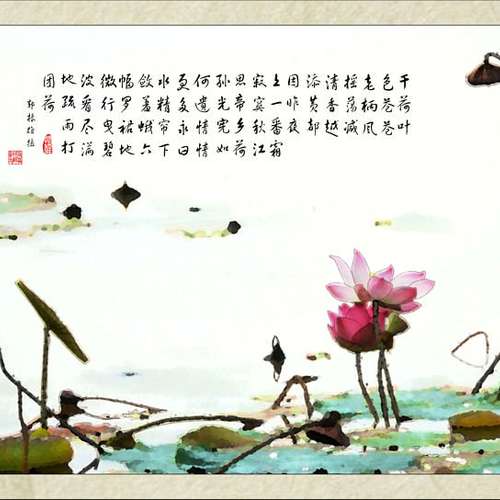 干荷叶
色苍苍
老柄风
摇荡减
清香越
添黄都
因昨夜
上一番霜
寂寞秋江
思帝乡荷
孙光宪如
何遣情情
更多永日
水精帘下
敛羞蛾六
幅罗裙地
微行曳碧
波看尽满
地疏雨打
团荷